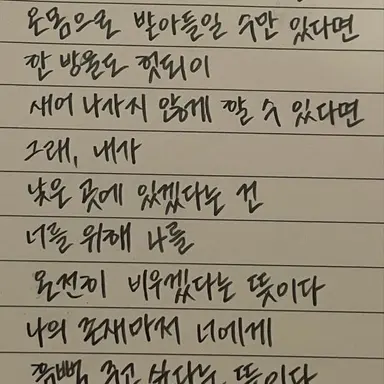 온몸으로 받아들일 수만 있다면
한 방울도 헛되이
새어 나가지 않게 할 수 있다면
그래, 내가
낮은 곳에 있겠다는 건
너를 위해 나를
온전히 비우겠다는 뜻이다
나의 존재마저 너에게
흠뻑 주고 싶다는 뜻이다